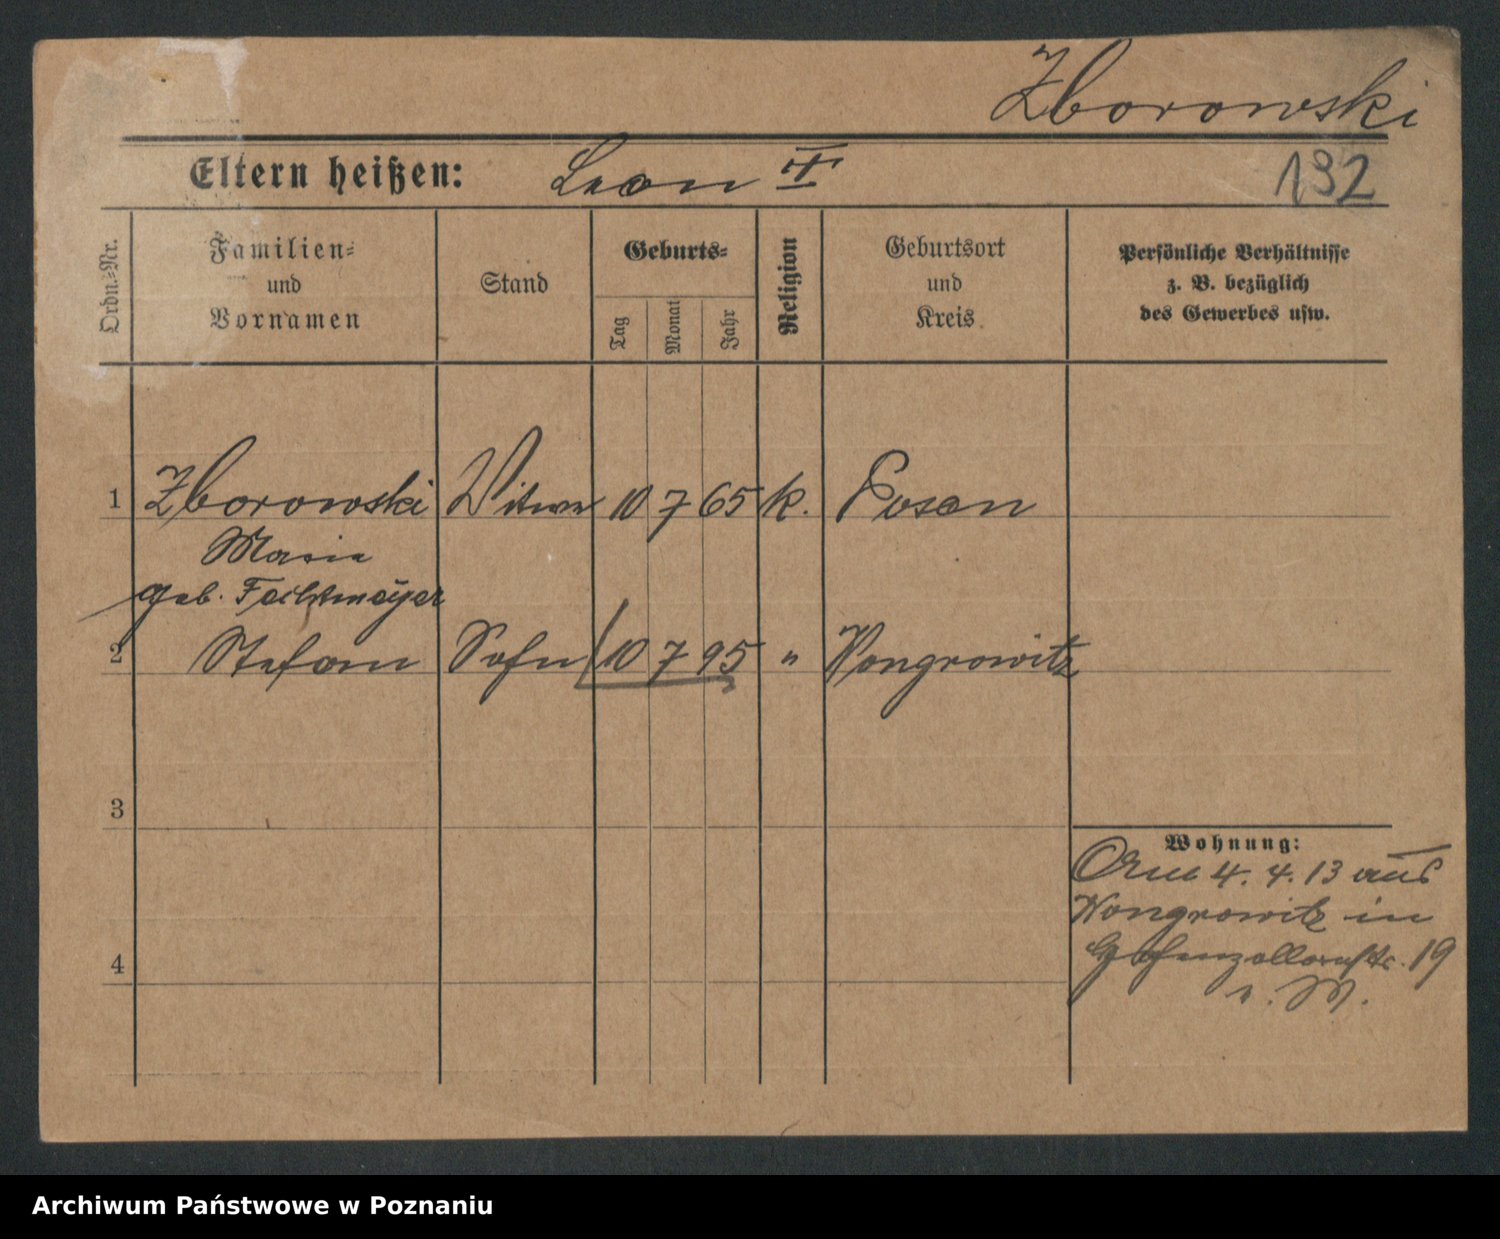 Zborowski
Eltern heißen: Leon
132
Ordn.-Nr.
Familien-
und
Vornamen
Stand
Geburts-
Tag
Monat
Jahr
Religion
Geburtsort
und
Kreis
Persönliche Verhältnisse
z. B. bezüglich
des Gewerbes usw.
1 Zborowski Witwe 10 7 65 k. Posen
Maria
geb.
2 Stefan Sohn 10 7 95 " Wongrowitz
3
Wohnung:
4. 4. 13 aus
Wongrowitz in
4
Hohenzollernstr. 19
M.